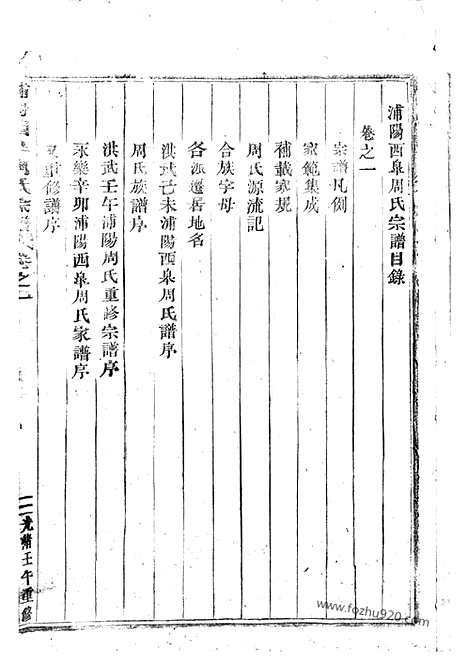 浦陽西臯周氏宗譜目錄
卷之一
宗譜凡例
家範集成
補載家規
周氏源流記
合族字母
各派遷居地名
洪武己未浦陽西臯周氏譜序
周氏族譜序
洪武壬午浦陽周氏重修宗譜序
永樂辛卯浦陽西臯周氏家譜序
重修譜序
氏宗譜 卷之一
光緒壬午重修
www.fozhu920.com